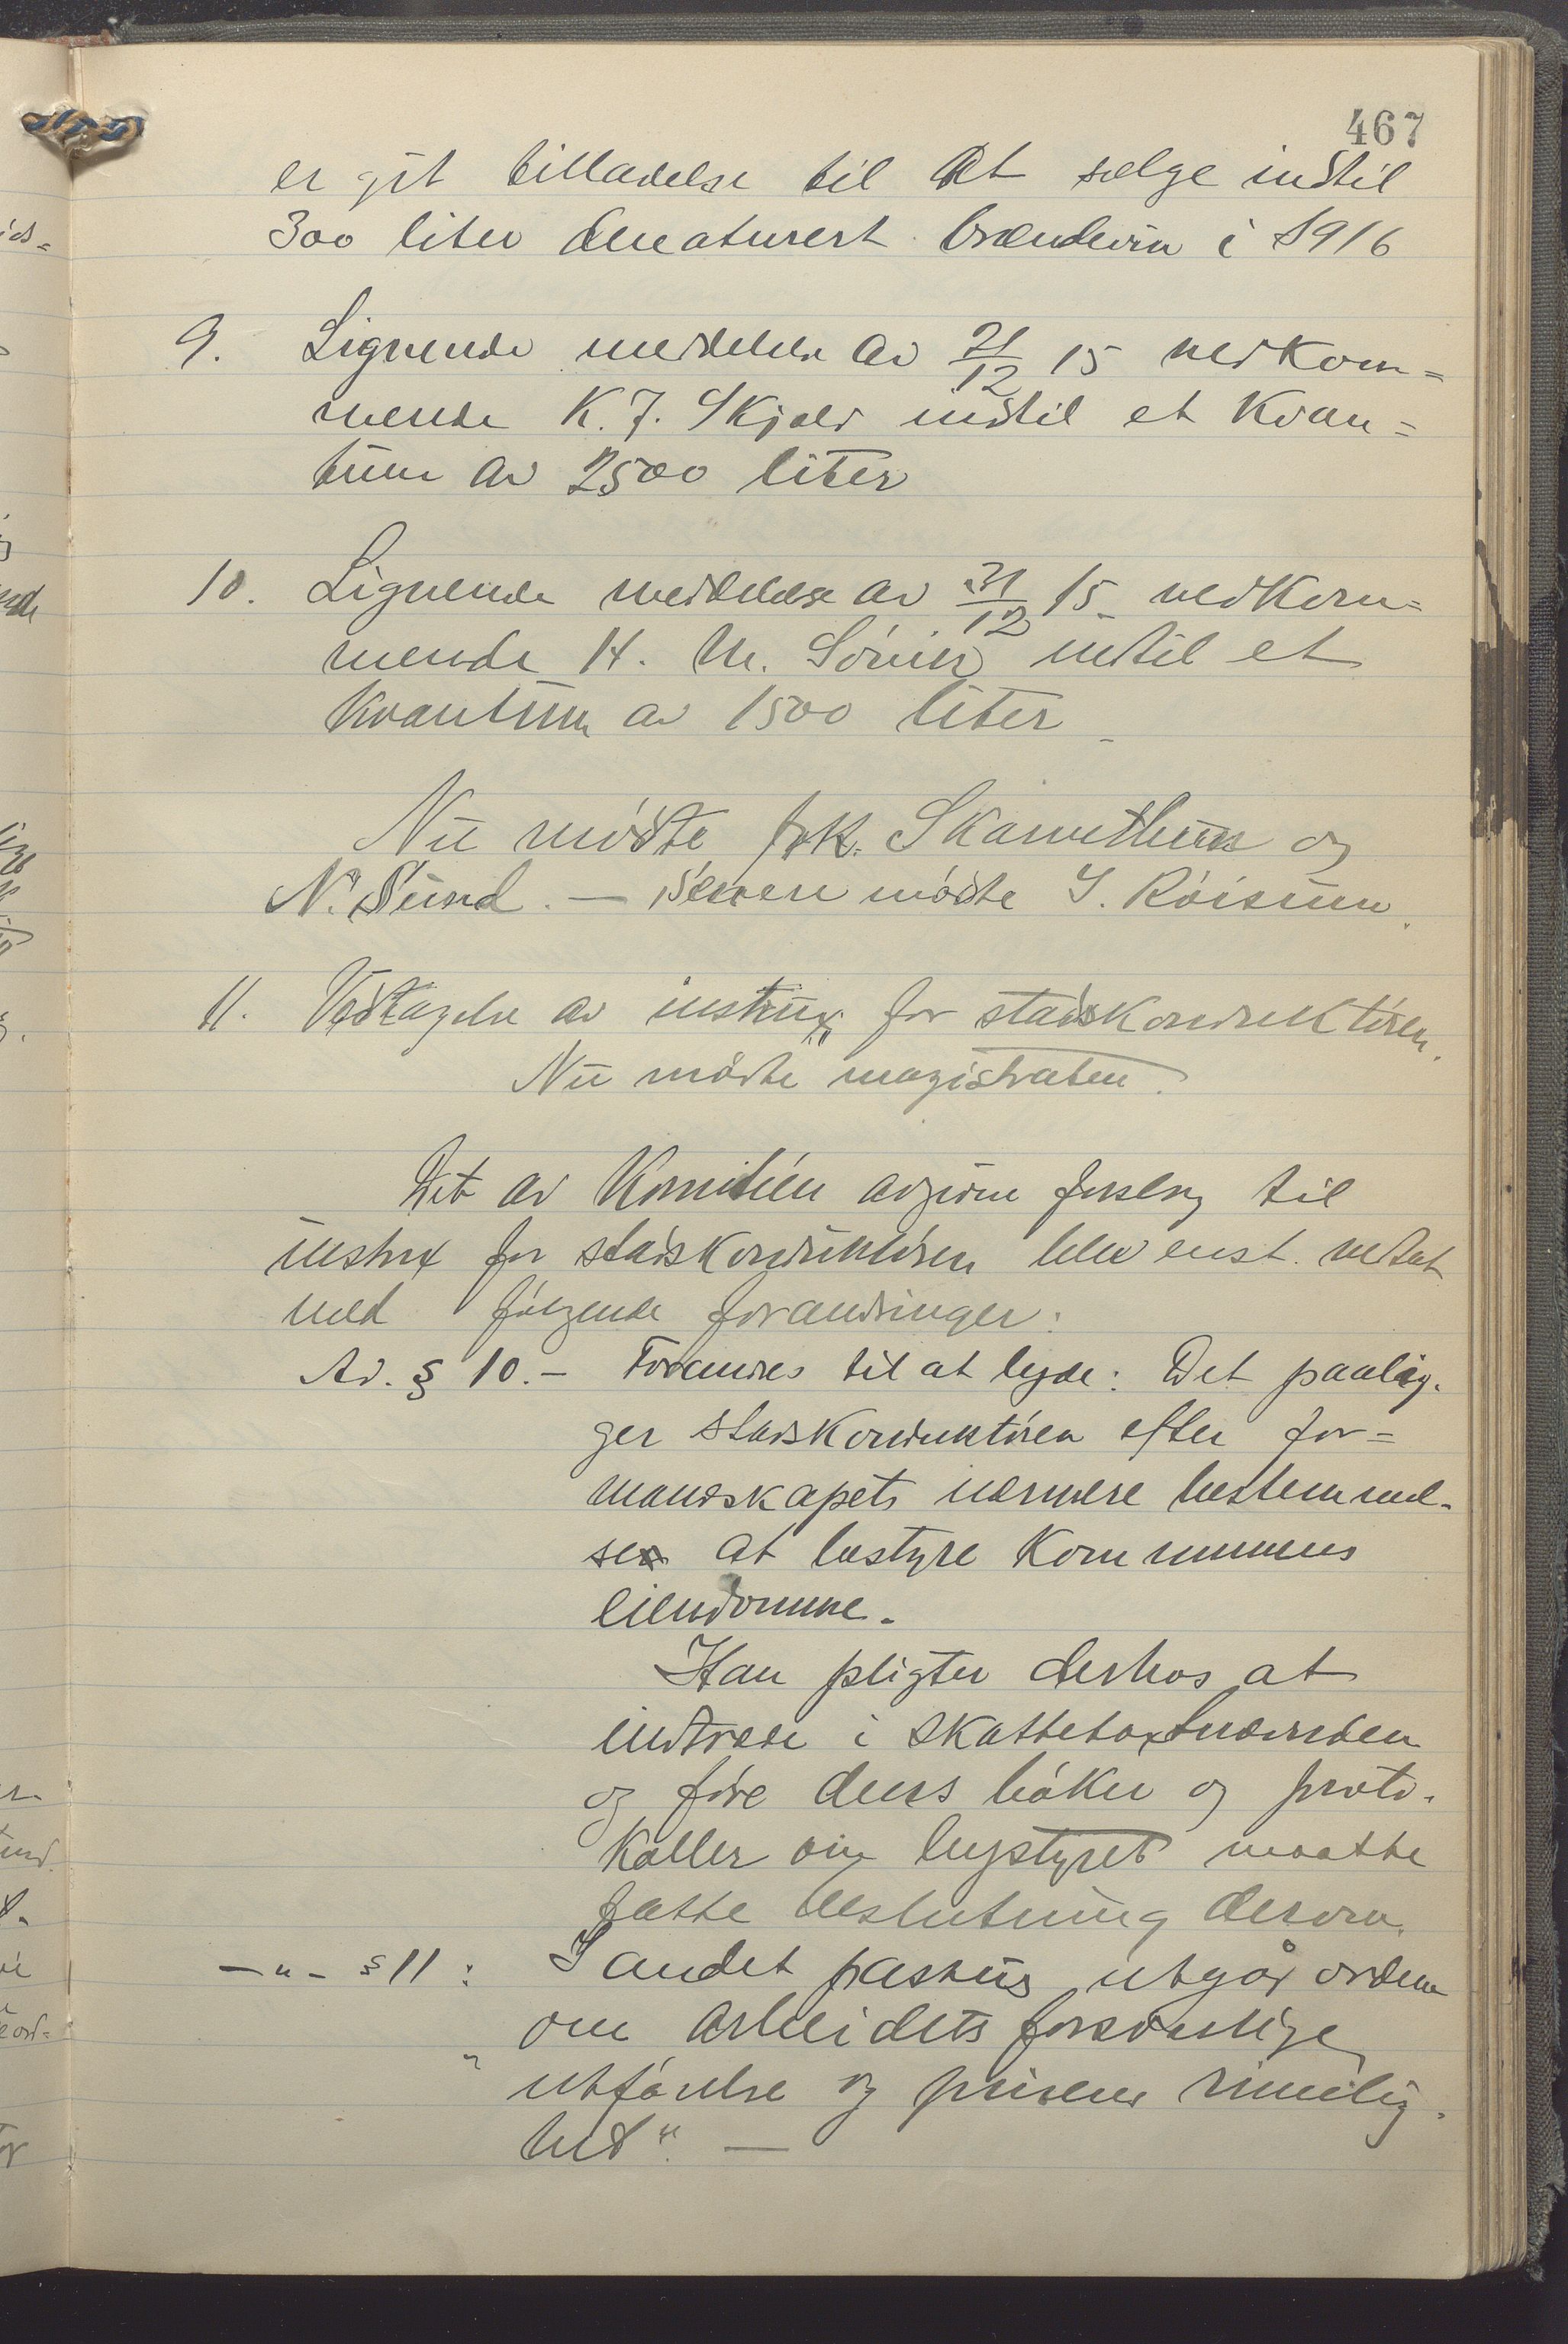 467
er git tilladelse til at sælge indtil
300 liter denaturert brændevin i 1916
9. Lignende meddelelse av 21/12 15 vedkom=
mende K. J. Skjold indtil et kvan=
tum av 2500 liter
10. Lignende meddelelse av 31/12 15 vedkom=
mende H. M. indtil et
kvantum av 1500 liter
Nu mødte frk. og
N. Sund. — Senere mødte I. Röisum.
11. Vedtagelse av instrux for stadskonduktören.
Nu mødte magistraten.
Det av Komitéen avgivne forslag til
instrux for stadskonduktören blev enst. vedtat
med følgende forandringer:
Ad. § 10. — Forandres til at lyde: Det paalig-
ger stadskonduktören efter for=
mandskapets nærmere bestemmel-
ser at bestyre Kommunens
eiendomme.
Han pligter derhos at
indtræde i skattetakstnævnden
og føre denss bøker og proto-
koller om bystyret maatte
fatte beslutning derom.
— " — § 11 : I andet passus utgår ordene
„om arbeidets forsvarlige
utførelse og prisens rimelig-
het“. —